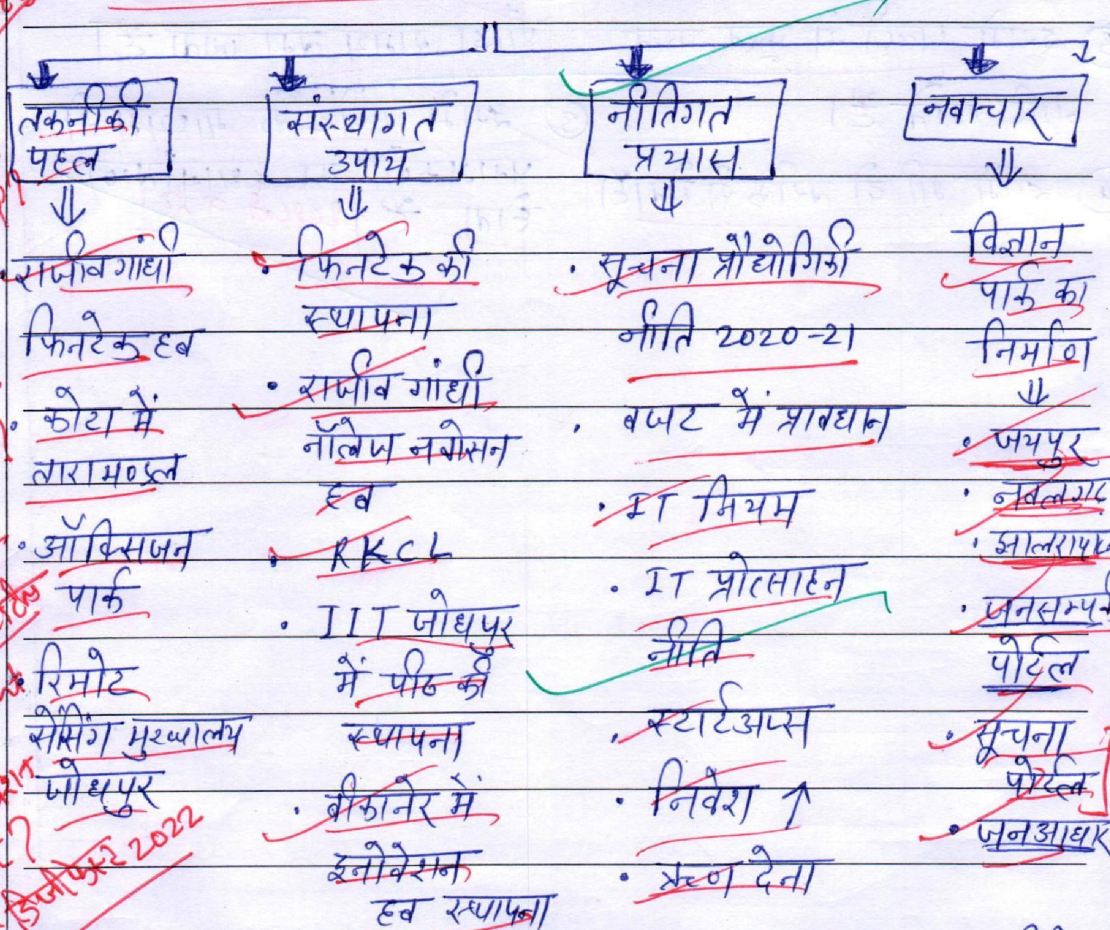 तकनीकी
पहल
राजीव गांधी
फिनटेक हब
• कोटा में
तारामण्डल
• ऑक्सिजन
पार्क
• रिमोट
सेंसिंग मुख्यालय
जोधपुर
डिजीफेस्ट 2022
संस्थागत
उपाय
• फिनटेक की
स्थापना
• राजीव गांधी
नॉलेज नवोसन
हब
• RKCL
• IIT जोधपुर
में पीठ की
स्थापना
• बीकानेर में
इनोवेशन
हब स्थापना
नीतिगत
प्रयास
• सूचना प्रौद्योगिकी
नीति 2020-21
• बजट में प्रावधान
• IT नियम
• IT प्रोत्साहन
नीति
• स्टार्टअप्स
• निवेश ↑
• ऋण देना
नवाचार
विज्ञान
पार्क का
निर्माण
• जयपुर
• नवलगढ
•
• जनसम्पर्क
पोर्टल
• सूचना
पोर्टल
• जनआधार